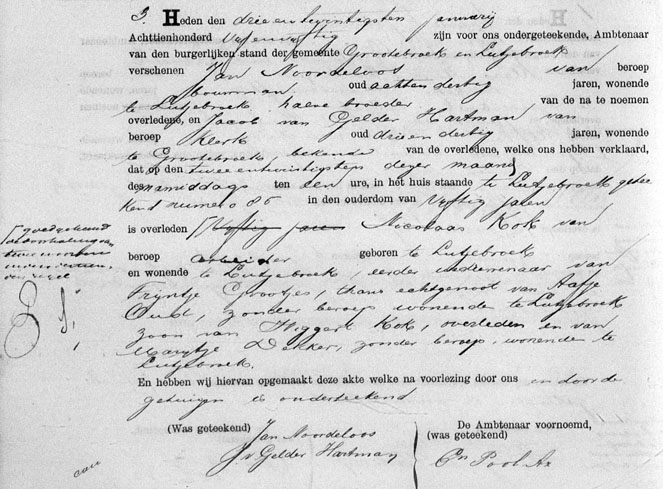 3. Heden den drieentwintigsten januarij
Achttienhonderd vijfenvijftig zijn voor ons ondergeteekende, Ambtenaar
van den burgerlijken stand der gemeente Grootebroek en Lutjebroek
verschenen Jan Noordeloos van beroep
bouwman oud achtendertig jaren, wonende
te Lutjebroek halve broeder van de na te noemen
overledene, en Jacob van Gelder Hartman van
beroep Klerk oud drieendertig jaren, wonende
te Grootebroek, bekende van de overledene, welke ons hebben verklaard,
dat op den tweeentwintigsten dezer maand
des namiddags ten een ure, in het huis staande te Lutjebroek geteekend
numero 86 in den ouderdom van vijftig jaren
is overleden Vijftig jaren Nicolaas Kok van
beroep arbeider geboren te Lutjebroek
en wonende te Lutjebroek, eerder weduwnaar van
Trijntje Grootjes, thans echtgenoot van Aafje
Oud, zonder beroep wonende te Lutjebroek
zoon van Kok, overleden en van
Marijtje Dekker, zonder beroep, wonende te
Lutjebroek.
En hebben wij hiervan opgemaakt deze akte welke na voorlezing door ons en door de
getuigen is onderteekend
(Was geteekend) De Ambtenaar voornoemd,
(was geteekend)
Jan Noordeloos
J v Gelder Hartman
Cn Pool Az
goedgekeurd
de doorhaling van
twee woorden